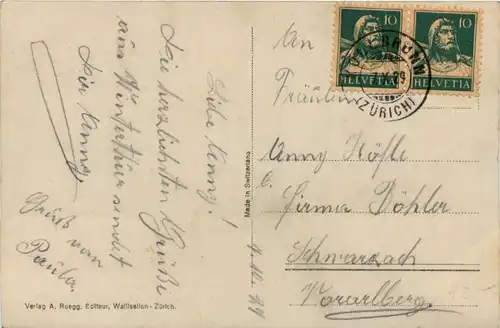 Liebe Anny!
Die herzlichsten Grüße
aus Winterthur sendet
Dir Anny.
Gruß von
Paula.
Verlag A. Ruegg, Editeur, Wallisellen - Zürich.
Made in Switzerland
10
10
HELVETIA
HELVETIA
(ZÜRICH)
An
Fräulein
Anny Höfle
b.
Firma Döhler
Schwarzach
Vorarlberg.